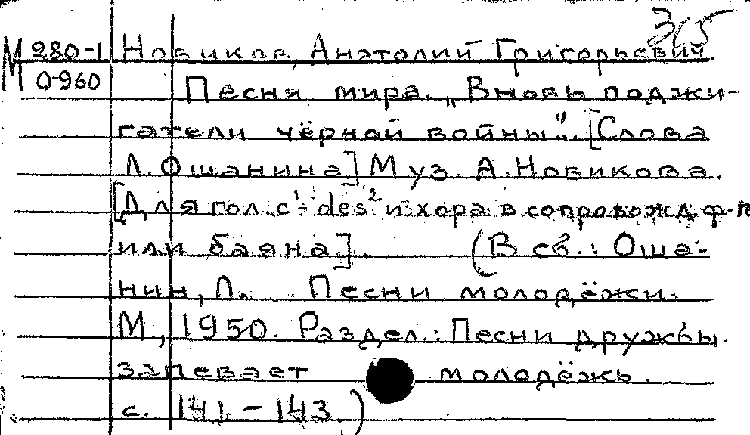 365
М 280-1 Новиков, Анатолий Григорьевич
0-960 Песня мира. „Вновь поджи-
гатели чёрной войны". [Слова
Л. Ошанина] Муз. А. Новикова.
[Для гол. c¹- des² и хора в сопровожд. ф-п
или баяна]. (В сб.: Оша-
нин, Л. Песни молодёжи.
М., 1950. Раздел.: Песни дружбы
запевает молодёжь.
с. 141-143.)